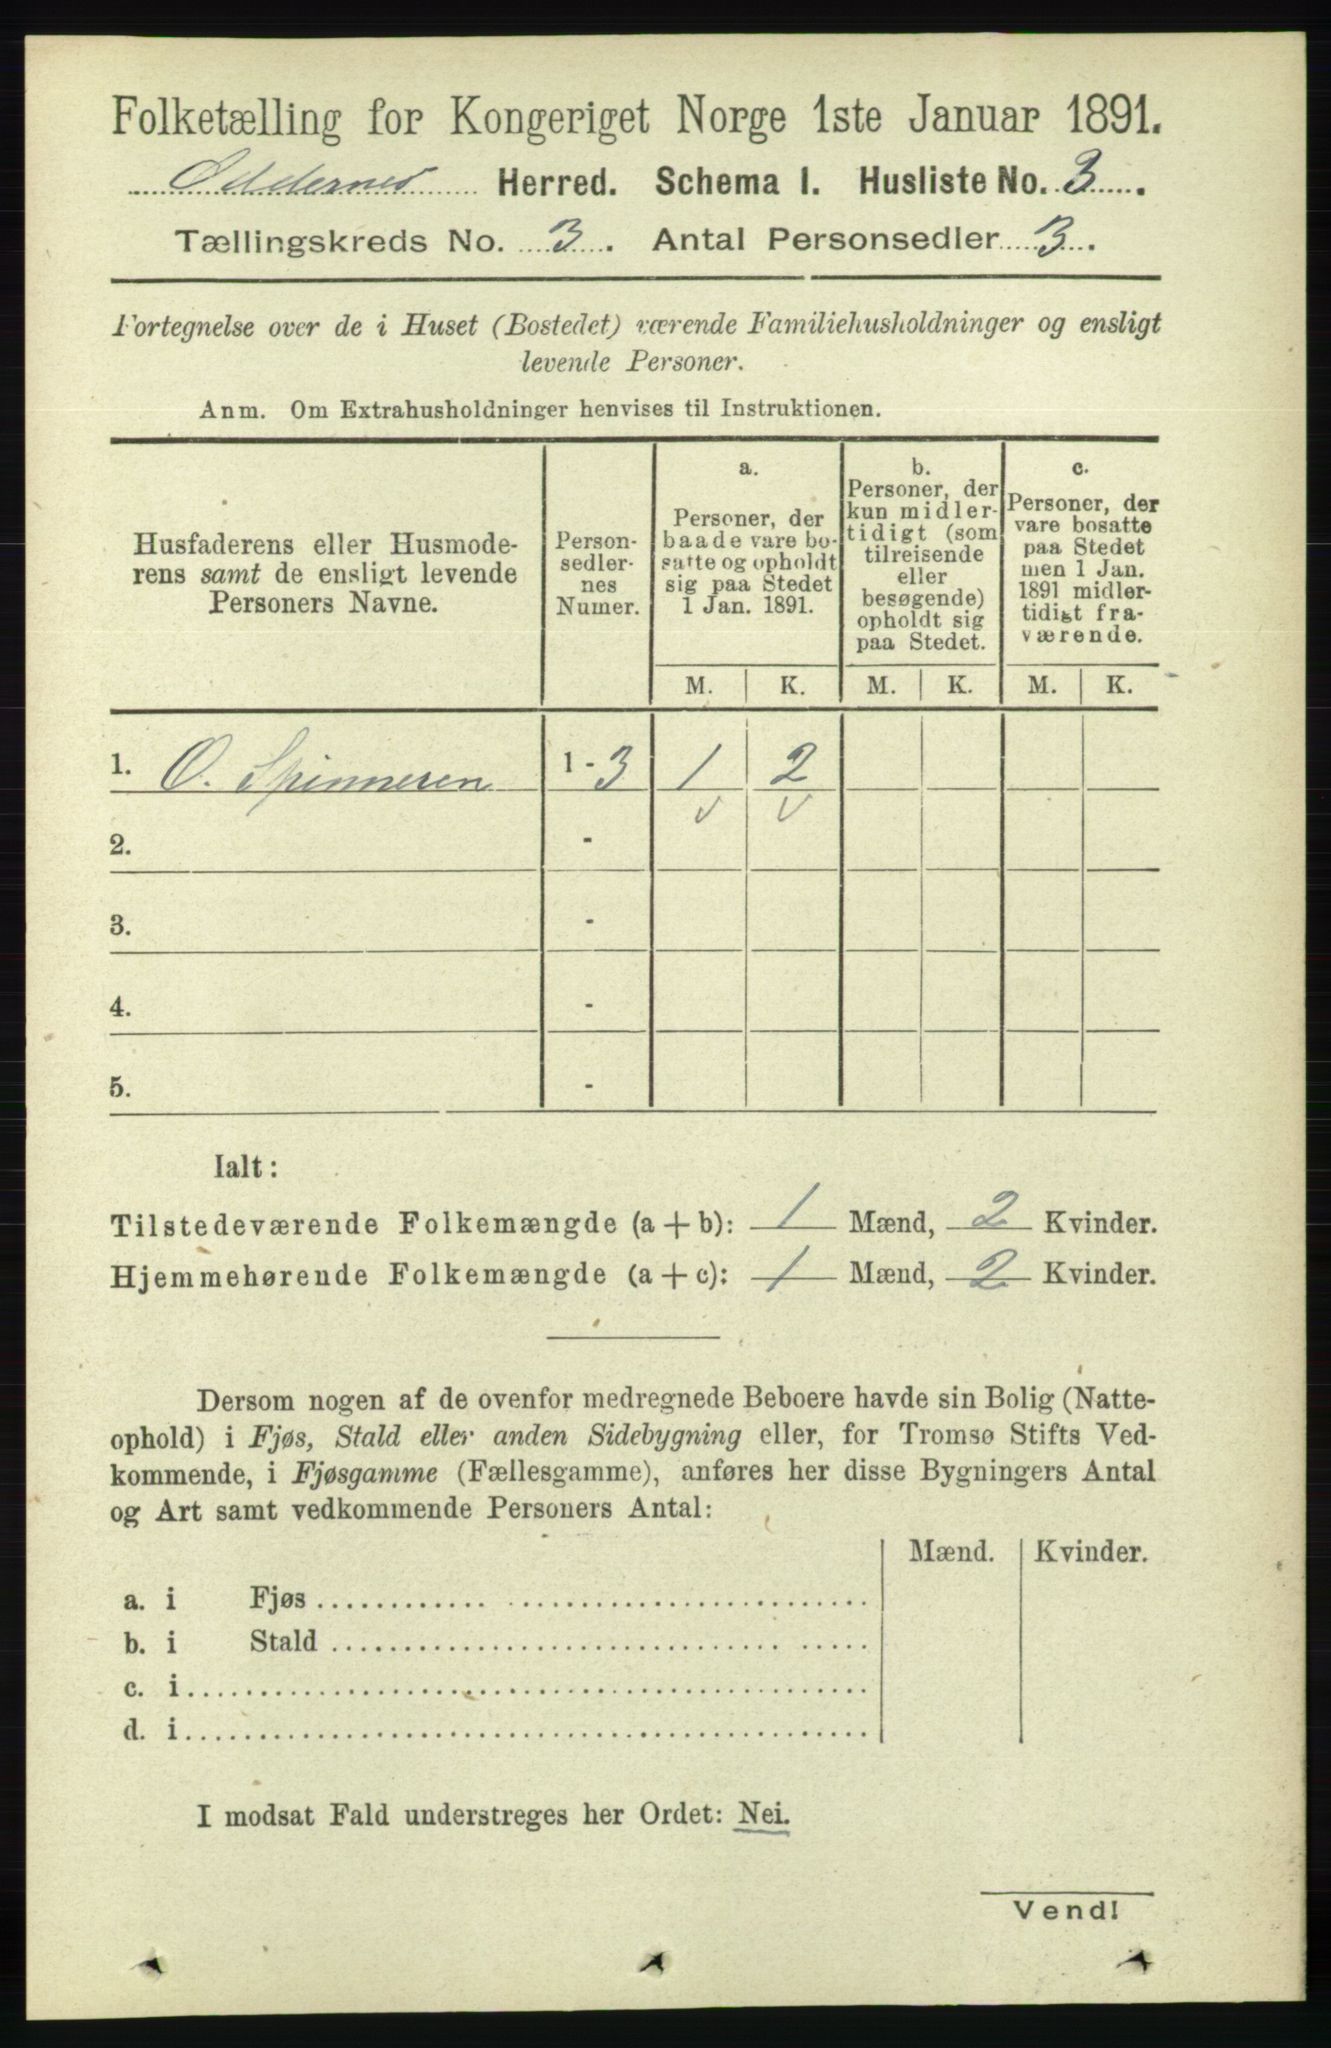 Folketælling for Kongeriget Norge 1ste Januar 1891.
Oddernes Herred. Schema I. Husliste No. 3.
Tællingskreds No. 3. Antal Personsedler 3.
Fortegnelse over de i Huset (Bostedet) værende Familiehusholdninger og ensligt
levende Personer.
Anm. Om Extrahusholdninger henvises til Instruktionen.
Husfaderens eller Husmode-
rens samt de ensligt levende
Personers Navne.
Person-
sedler-
nes
Numer.
a.
Personer, der
baade vare bo-
satte og opholdt
sig paa Stedet
1 Jan. 1891.
b.
Personer, der
kun midler-
tidigt (som
tilreisende
eller
besøgende)
opholdt sig
paa Stedet.
c.
Personer, der
vare bosatte
paa Stedet
men 1 Jan.
1891 midler-
tidigt fra-
værende.
M. K. M. K. M. K.
1. O. Spinneren 1 - 3 1 2
2. -
3. -
4. -
5. -
Ialt:
Tilstedeværende Folkemængde (a + b): 1 Mænd, 2 Kvinder.
Hjemmehørende Folkemængde (a + c): 1 Mænd, 2 Kvinder.
Dersom nogen af de ovenfor medregnede Beboere havde sin Bolig (Natte-
ophold) i Fjøs, Stald eller anden Sidebygning eller, for Tromsø Stifts Ved-
kommende, i Fjøsgamme (Fællesgamme), anføres her disse Bygningers Antal
og Art samt vedkommende Personers Antal:
Mænd. Kvinder.
a. i Fjøs
b. i Stald
c. i
d. i
I modsat Fald understreges her Ordet: Nei.
Vend!